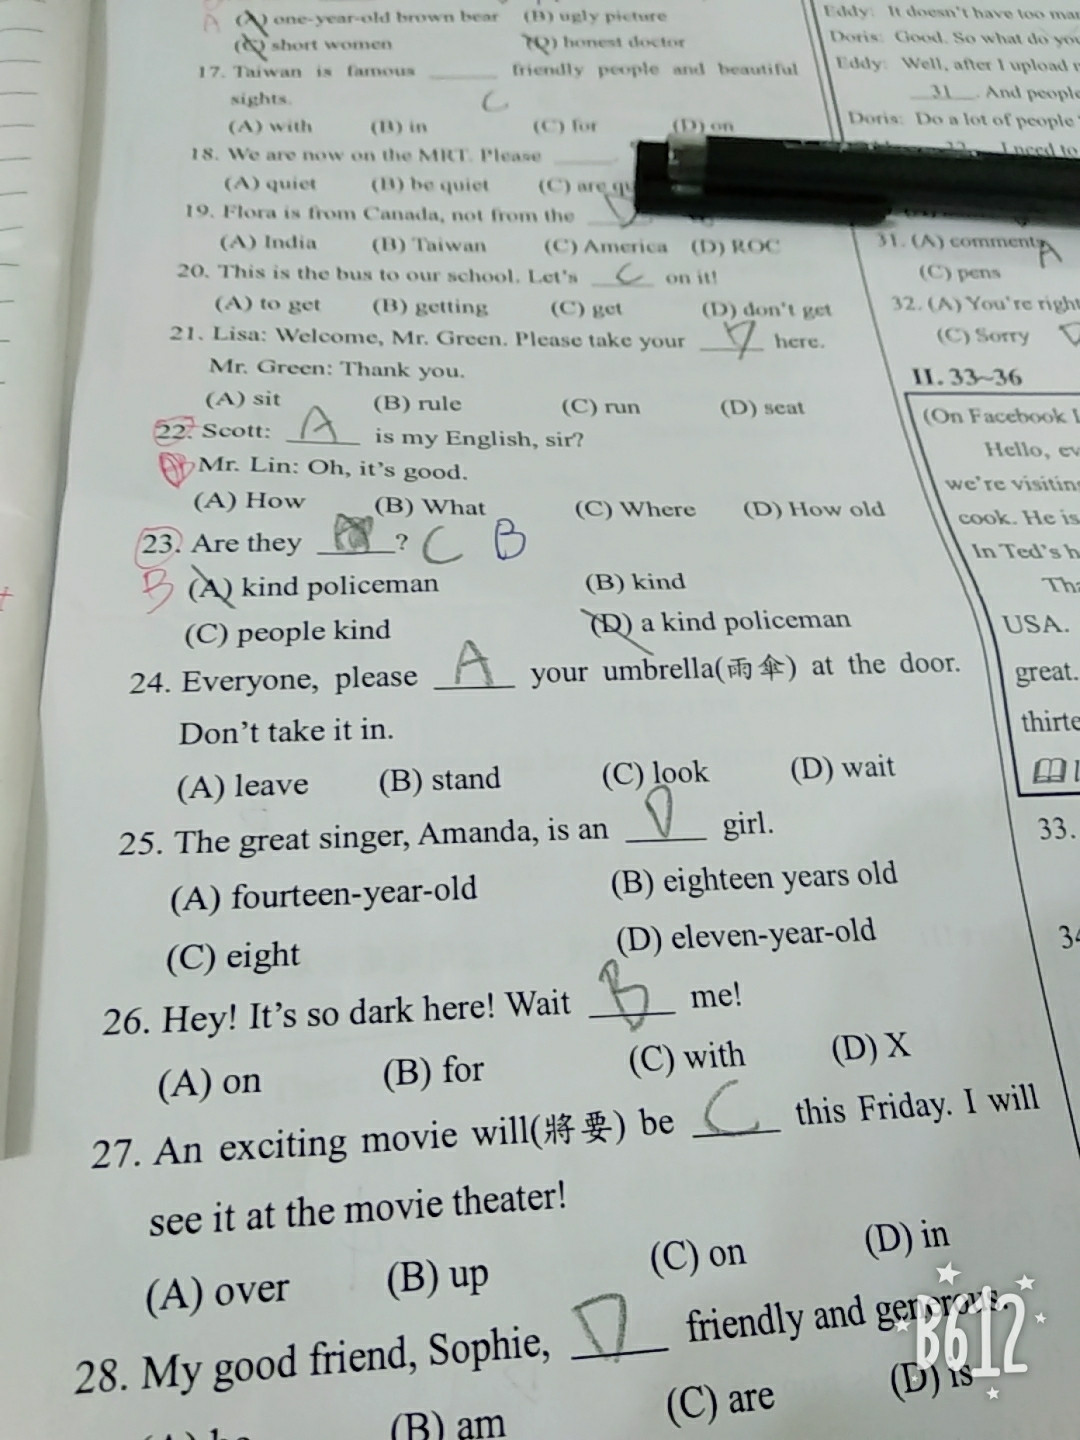 A (A) one-year-old brown bear (B) ugly picture
(C) short women (D) honest doctor
17. Taiwan is famous ______ friendly people and beautiful
sights. C
(A) with (B) in (C) for (D) on
18. We are now on the MRT. Please ______
(A) quiet (B) be quiet (C) are
19. Flora is from Canada, not from the ______
(A) India (B) Taiwan (C) America (D) ROC
20. This is the bus to our school. Let's C on it!
(A) to get (B) getting (C) get (D) don't get
21. Lisa: Welcome, Mr. Green. Please take your D here.
Mr. Green: Thank you.
(A) sit (B) rule (C) run (D) seat
22. Scott: A is my English, sir?
Mr. Lin: Oh, it's good.
(A) How (B) What (C) Where (D) How old
23. Are they ______? C B
B (A) kind policeman (B) kind
(C) people kind (D) a kind policeman
24. Everyone, please A your umbrella(雨傘) at the door.
Don't take it in.
(A) leave (B) stand (C) look (D) wait
25. The great singer, Amanda, is an D girl.
(A) fourteen-year-old (B) eighteen years old
(C) eight (D) eleven-year-old
26. Hey! It's so dark here! Wait B me!
(A) on (B) for (C) with (D) X
27. An exciting movie will(將要) be C this Friday. I will
see it at the movie theater!
(A) over (B) up (C) on (D) in
28. My good friend, Sophie, D friendly and generous.
(B) am (C) are (D) is
Eddy: It doesn't have too
Doris: Good. So what do
Eddy: Well, after I upload
31 . And people
Doris: Do a lot of people
I need to
31. (A) comments A
(C) pens
32. (A) You're right
(C) Sorry
II. 33~36
(On Facebook
Hello,
we're visiting
cook. He is
In Ted's
USA.
great.
33.
B612